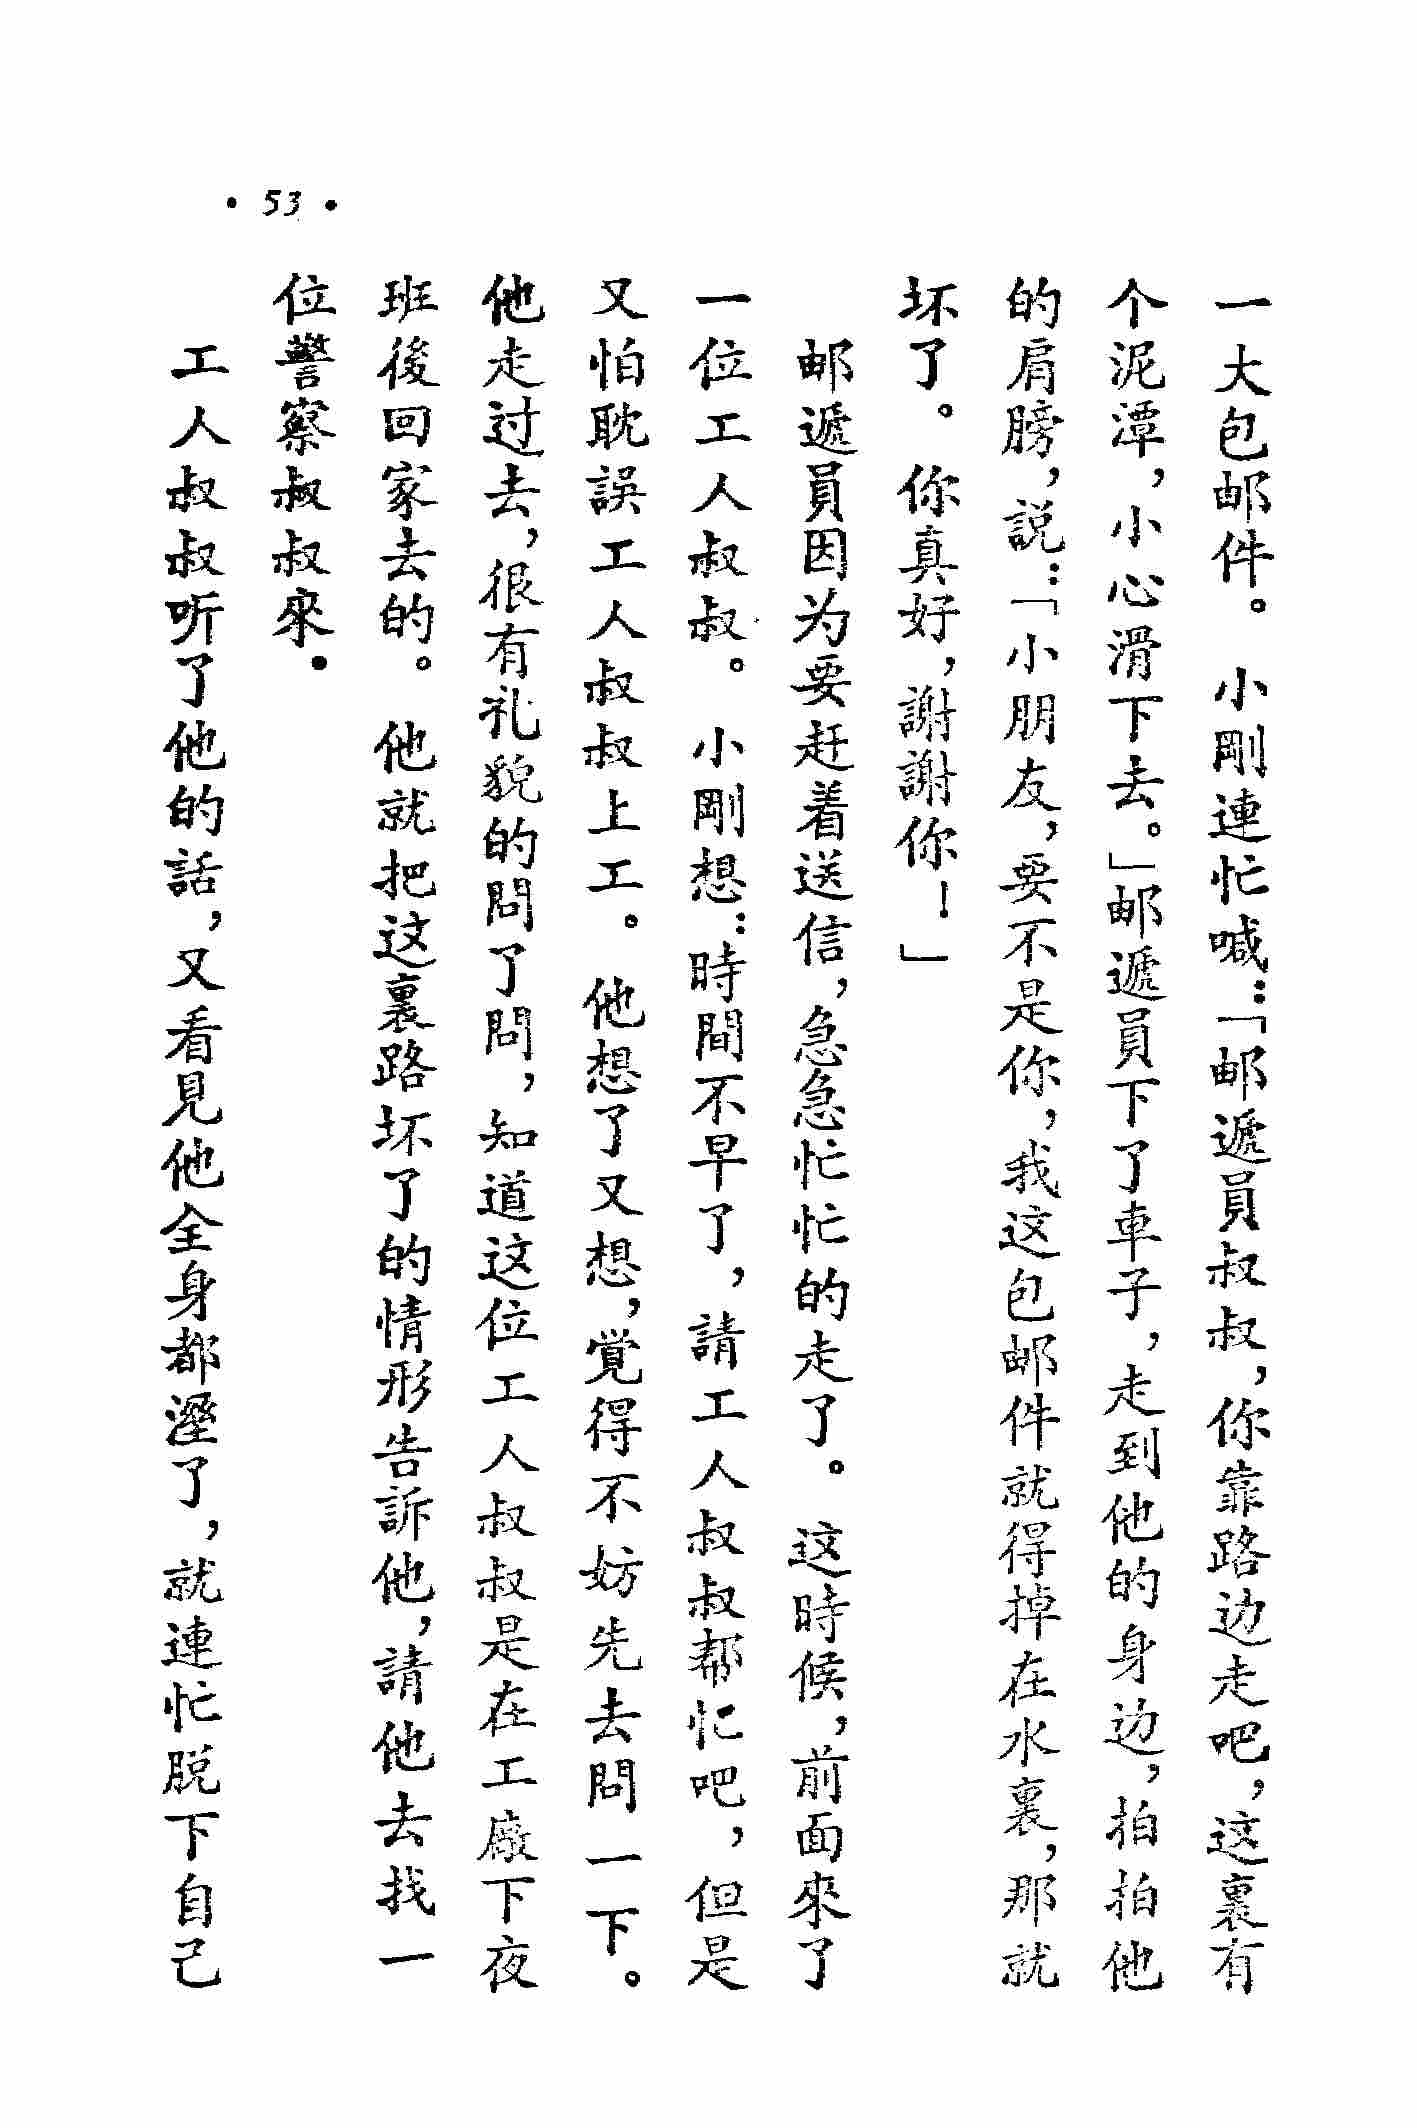 ·53·
一大包邮件。小剛連忙喊：「邮遞員叔叔，你靠路边走吧，这裏有
个泥潭，小心滑下去。」邮遞員下了車子，走到他的身边，拍拍他
的肩膀，説：「小朋友，要不是你，我这包邮件就得掉在水裏，那就
坏了。你真好，謝謝你！」
邮遞員因为要赶着送信，急急忙忙的走了。这時候，前面來了
一位工人叔叔。小剛想：時間不早了，請工人叔叔帮忙吧，但是
又怕耽誤工人叔叔上工。他想了又想，覚得不妨先去問一下。
他走过去，很有礼貌的問了問，知道这位工人叔叔是在工廠下夜
班後回家去的。他就把这裏路坏了的情形告訴他，請他去找一
位警察叔叔來。
工人叔叔听了他的話，又看見他全身都溼了，就連忙脱下自己